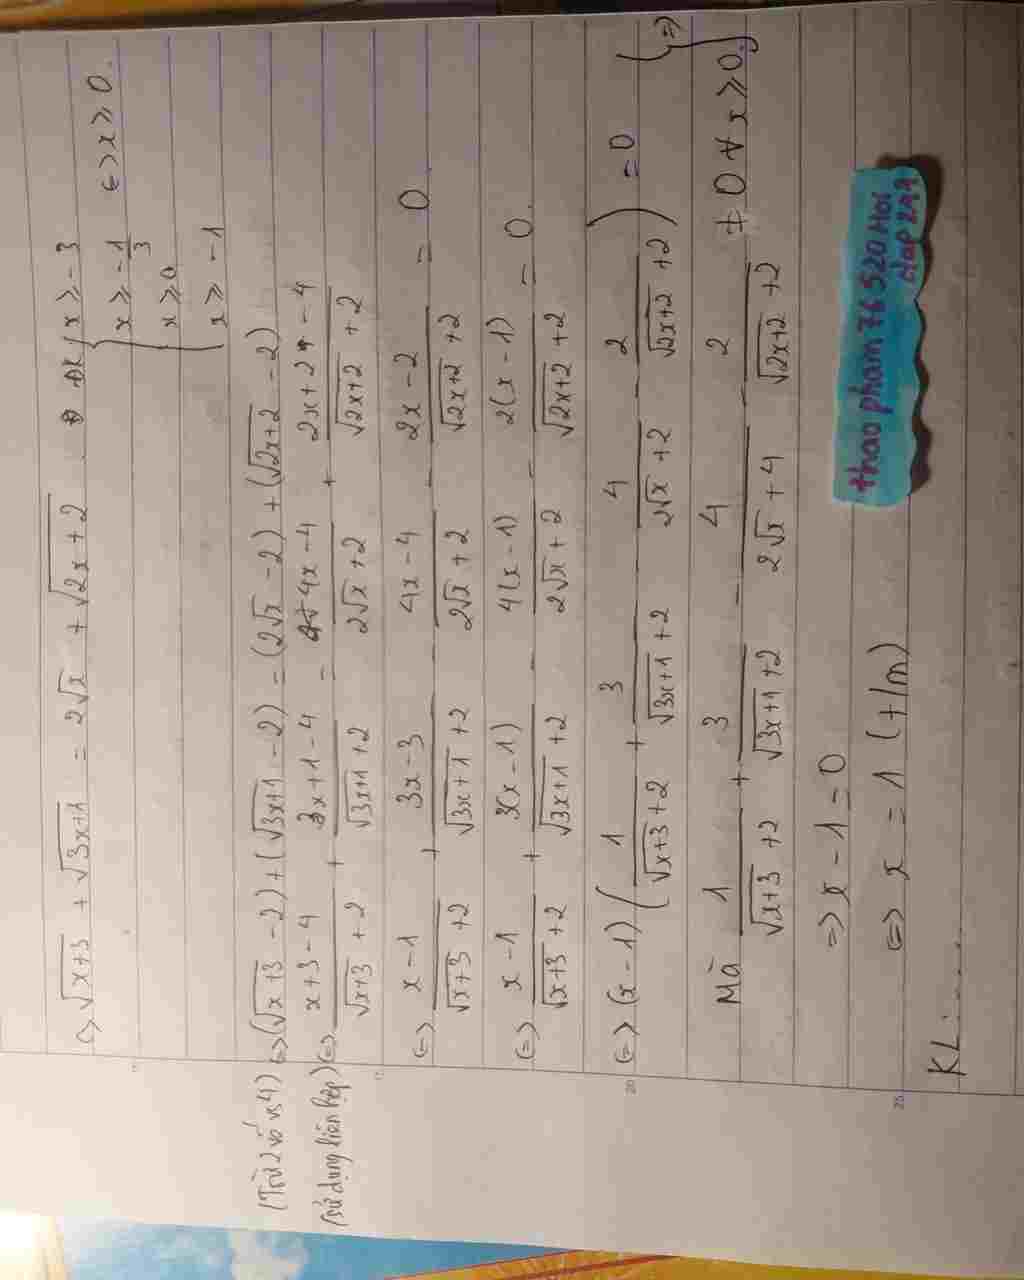 c) √(x+3) + √(3x+1) = 2√x + √(2x+2) . ĐK { x ≥ -3
x ≥ -1/3 <=> x ≥ 0.
x ≥ 0
x ≥ -1
(Trừ 2 vế vs 4) <=> (√(x+3) - 2) + (√(3x+1) - 2) = (2√x - 2) + (√(2x+2) - 2)
(sử dụng liên hợp) <=> (x+3-4)/(√(x+3) + 2) + (3x+1-4)/(√(3x+1) + 2) = (4x-4)/(2√x + 2) + (2x+2-4)/(√(2x+2) + 2)
<=> (x-1)/(√(x+3) + 2) + (3x-3)/(√(3x+1) + 2) - (4x-4)/(2√x + 2) - (2x-2)/(√(2x+2) + 2) = 0
<=> (x-1)/(√(x+3) + 2) + 3(x-1)/(√(3x+1) + 2) - 4(x-1)/(2√x + 2) - 2(x-1)/(√(2x+2) + 2) = 0.
<=> (x-1) ( 1/(√(x+3) + 2) + 3/(√(3x+1) + 2) - 4/(2√x + 2) - 2/(√(2x+2) + 2) ) = 0
Mà 1/(√(x+3) + 2) + 3/(√(3x+1) + 2) - 4/(2√x + 4) - 2/(√(2x+2) + 2) ≠ 0 ∀ x ≥ 0.
=> x - 1 = 0
<=> x = 1 (t/m)
KL: ......
thao pham 76520 Hoi
dap 247